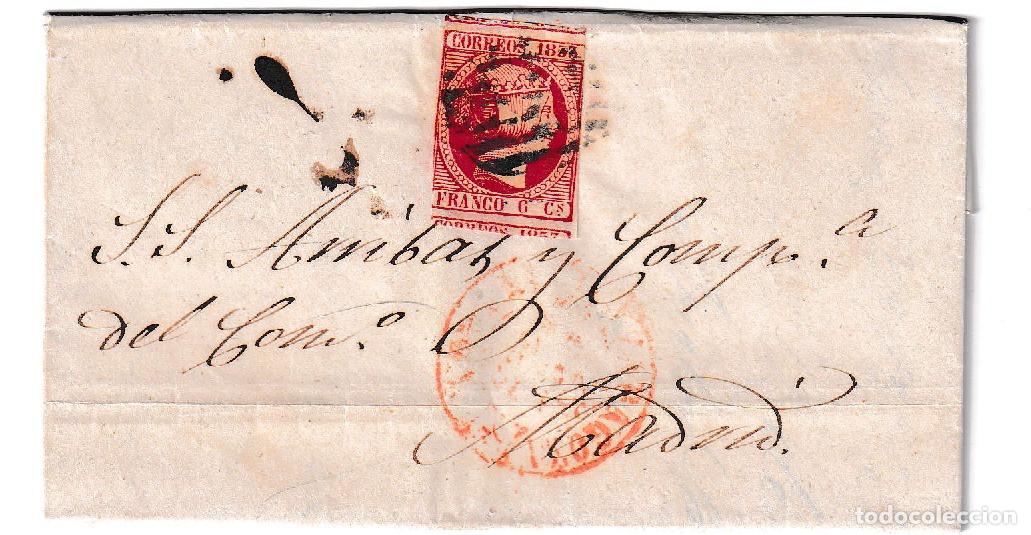 CORREOS 1853
FRANCO 6 Cs
CORREOS 1853
S.S. Arribas y Comp.a
del Com.o
Madrid.
todocoleccion